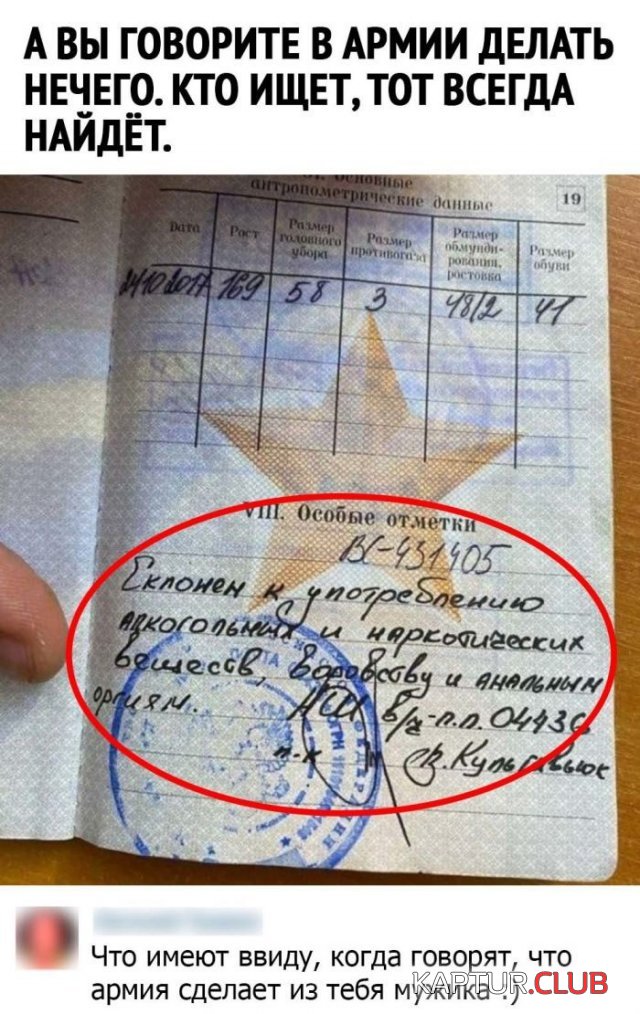 А ВЫ ГОВОРИТЕ В АРМИИ ДЕЛАТЬ
НЕЧЕГО. КТО ИЩЕТ, ТОТ ВСЕГДА
НАЙДЁТ.
основные
антропометрические данные
19
Дата
Рост
Размер головного убора
Размер противогаза
Размер обмунди-рования, ростовка
Размер обуви
24102017 169 58 3 48/2 41
VIII. Особые отметки
ВС-431405
Склонен к употреблению
алкогольных и наркотических
веществ, воровству и анальным
оргиям... НШ в/ч-п.п. 04436
п-к В.Кульбавьюк
Что имеют ввиду, когда говорят, что
армия сделает из тебя мужика :)
KAPTUR.CLUB